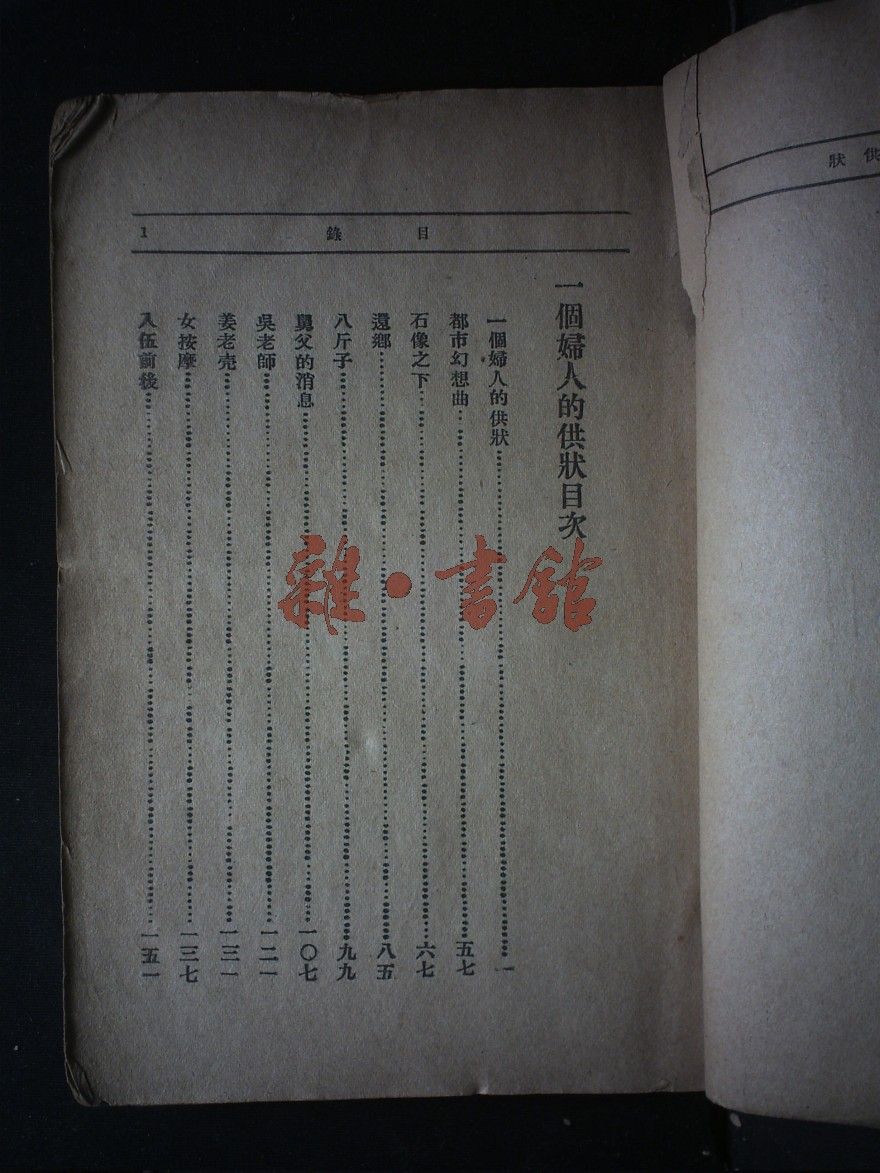 目錄
1
一個婦人的供狀目次
一個婦人的供狀……一
都市幻想曲……五七
石像之下……六七
還鄉……八五
八斤子……九九
舅父的消息……一〇七
吳老師……一二一
姜老壳……一三一
女按摩……一三七
入伍前後……一五一
雜•書館
供狀